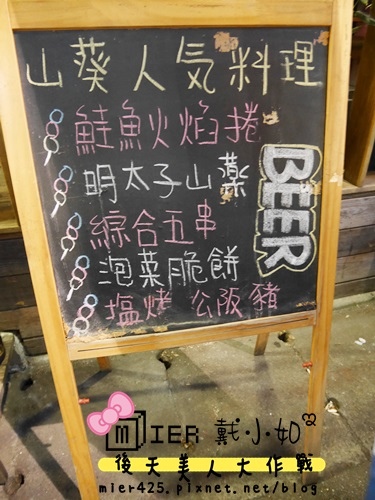 山葵人気料理
鮭魚火焰捲
明太子山薬
綜合五串
泡菜脆餅
塩烤公阪豬
BEER
MIER 戴小如
後天美人大作戰
mier425.pixnet.net/blog